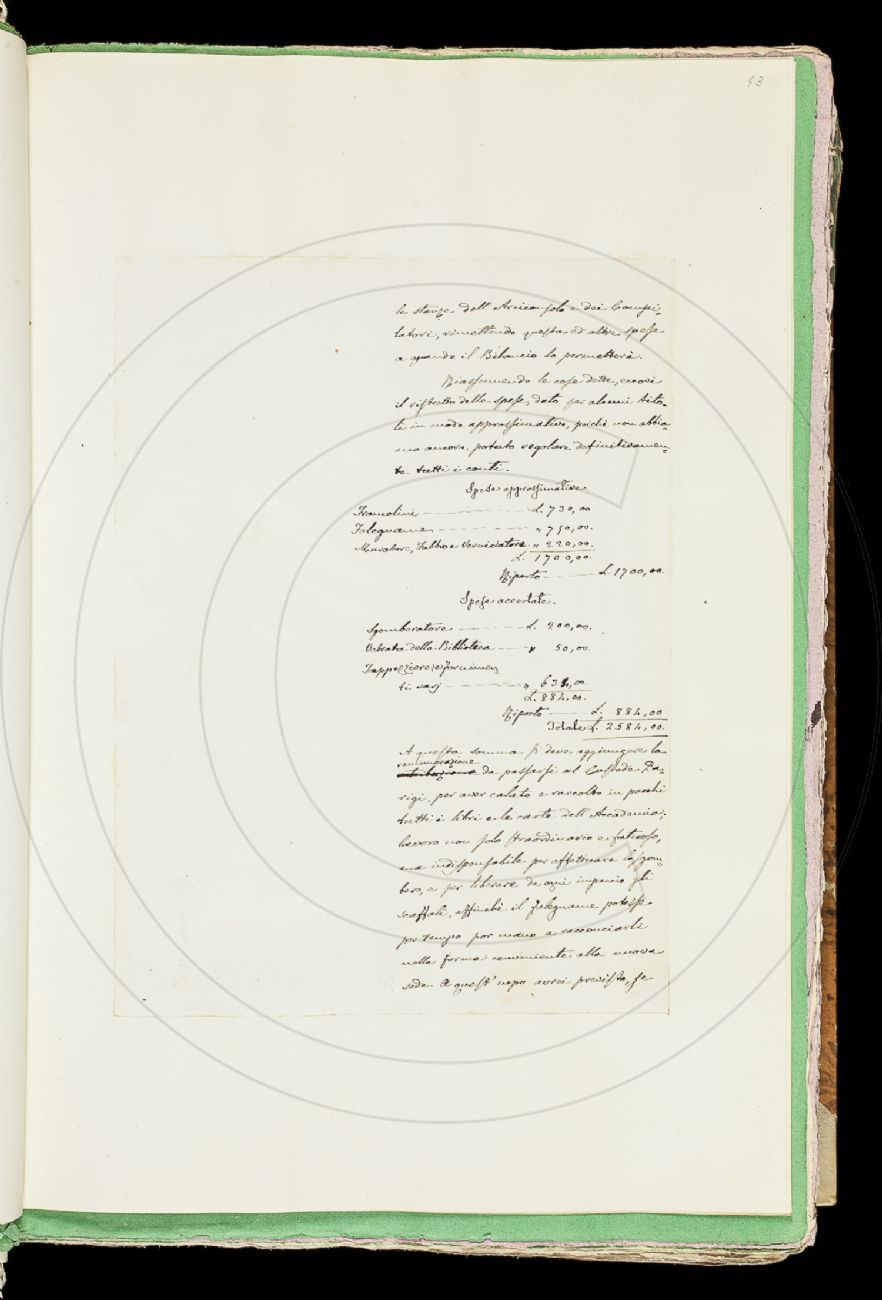 43
le stanze dell'Arciconsolo e dei Compi-
latori, rimettendo questa ed altre spese
a quando il Bilancio lo permetterà.
Riassumendo le cose dette, eccovi
il ristretto delle spese, dato per alcuni tito-
li in modo approssimativo, poichè non abbia-
mo ancora potuto regolare definitivamen-
te tutti i conti.
Spese approssimative
Tramolini L. 730,00
Falegname " 750,00.
Muratore, Fabbro e Verniciatore " 220,00.
L. 1700,00.
Riporto L. 1700,00.
Spese accertate.
Sgomberatore L. 200,00.
Vetrata della Biblioteca " 50,00.
Tappezziere e fornimen
ti varj " 634,00.
L. 884,00.
Riporto L. 884,00
Totale L. 2584,00.
A questa somma si deve aggiungere la
remunerazione
da passarsi al Custode Pa-
rigi, per aver calato e raccolto in pacchi
tutti i libri e le carte dell'Accademia;
lavoro non solo straordinario e faticoso,
ma indispensabile per effettuare lo sgom-
bero, e per liberare da ogni impaccio gli
scaffali, affinchè il falegname potesse
per tempo por mano a racconciarli
nella forma conveniente alla nuova
sede. A quest'uopo avrei previsto, se